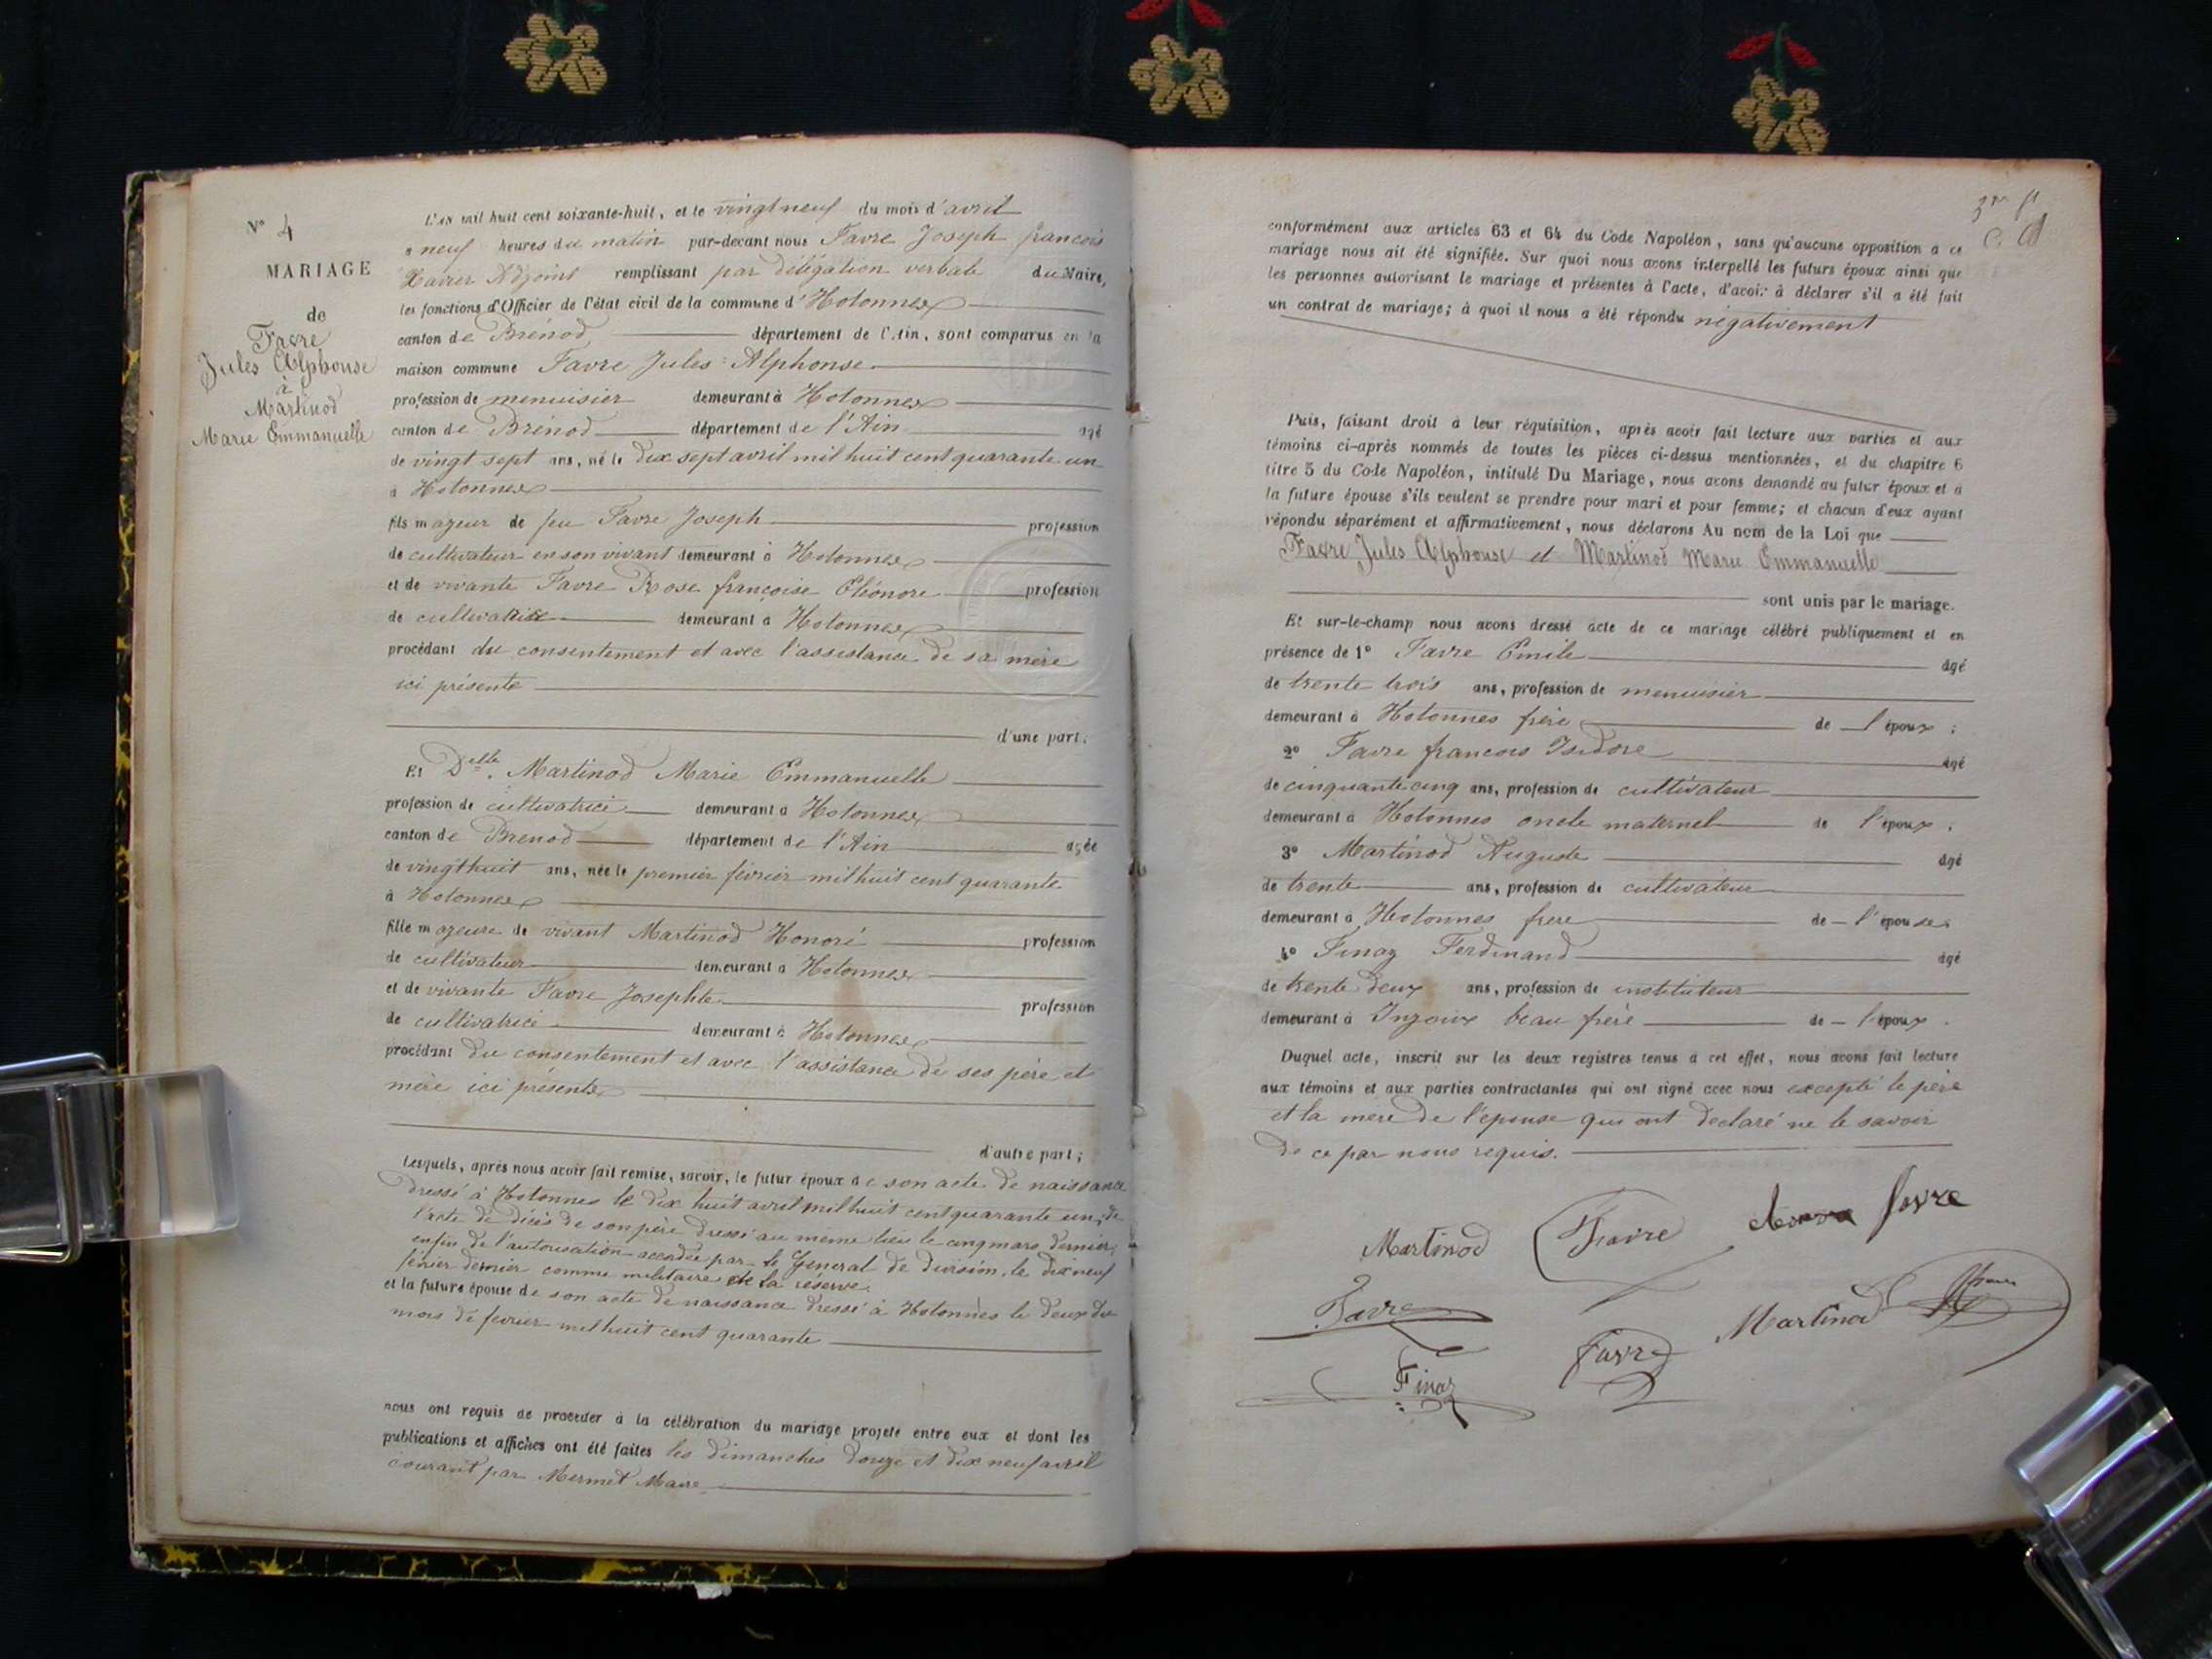 N° 4
MARIAGE
de
Favre
Jules Alphonse
à
Martinod
Marie Emmanuelle
L'an mil huit cent soixante-huit, et le vingt neuf du mois d'avril
à neuf heures du matin par-devant nous Favre Joseph françois
Xavier Adjoint remplissant par délégation verbale du Maire,
les fonctions d'Officier de l'état civil de la commune d'Hotonnes
canton de Brénod département de l'Ain, sont comparus en la
maison commune Favre Jules Alphonse
profession de menuisier demeurant à Hotonnes
canton de Brénod département de l'Ain âgé
de vingt sept ans, né le dix sept avril mil huit cent quarante un
à Hotonnes
fils majeur de feu Favre Joseph profession
de cultivateur en son vivant demeurant à Hotonnes
et de vivante Favre Rose françoise Eléonore profession
de cultivatrice demeurant à Hotonnes
procédant du consentement et avec l'assistance de sa mère
ici présente
d'une part.
Et Delle. Martinod Marie Emmanuelle
profession de cultivatrice demeurant à Hotonnes
canton de Brenod département de l'Ain agée
de vingt huit ans, née le premier février mil huit cent quarante
à Hotonnes
fille majeure de vivant Martinod Honoré profession
de cultivateur demeurant à Hotonnes
et de vivante Favre Josephte profession
de cultivatrice demeurant à Hotonnes
procédant du consentement et avec l'assistance de ses père et
mère ici présents
d'autre part;
Lesquels, après nous avoir fait remise, savoir, le futur époux de son acte de naissance
dressé à Hotonnes le dix huit avril mil huit cent quarante un, de
l'acte de décès de son père dressé au même lieu le cinq mars dernier,
enfin de l'autorisation accordée par le Général de division, le dix neuf
février dernier comme militaire de la réserve.
et la future épouse de son acte de naissance dressé à Hotonnes le deux du
mois de février mil huit cent quarante
nous ont requis de procéder à la célébration du mariage projeté entre eux et dont les
publications et affiches ont été faites les dimanches douze et dix neuf avril
courant par Mermet Maire
conformément aux articles 63 et 64 du Code Napoléon, sans qu'aucune opposition à ce
mariage nous ait été signifiée. Sur quoi nous avons interpellé les futurs époux ainsi que
les personnes autorisant le mariage et présentes à l'acte, d'avoir à déclarer s'il a été fait
un contrat de mariage; à quoi il nous a été répondu négativement
Puis, faisant droit à leur réquisition, après avoir fait lecture aux parties et aux
témoins ci-après nommés de toutes les pièces ci-dessus mentionnées, et du chapitre 6
titre 5 du Code Napoléon, intitulé Du Mariage, nous avons demandé au futur époux et à
la future épouse s'ils veulent se prendre pour mari et pour femme; et chacun d'eux ayant
répondu séparément et affirmativement, nous déclarons Au nom de la Loi que
Favre Jules Alphonse et Martinod Marie Emmanuelle
sont unis par le mariage.
Et sur-le-champ nous avons dressé acte de ce mariage célébré publiquement et en
présence de 1° Favre Emile âgé
de trente trois ans, profession de menuisier
demeurant à Hotonnes frère de l'époux;
2° Favre francois Isidore âgé
de cinquante cinq ans, profession de cultivateur
demeurant à Hotonnes oncle maternel de l'époux;
3° Martinod Auguste âgé
de trente ans, profession de cultivateur
demeurant à Hotonnes frere de l'épouse
4° Finaz Ferdinand âgé
de trente deux ans, profession de instituteur
demeurant à Injoux beau frère de l'époux.
Duquel acte, inscrit sur les deux registres tenus à cet effet, nous avons fait lecture
aux témoins et aux parties contractantes qui ont signé avec nous excepté le père
et la mère de l'épouse qui ont déclaré ne le savoir
de ce par nous requis.
Martinod Favre favre
Favre Favre Martinod
Finaz